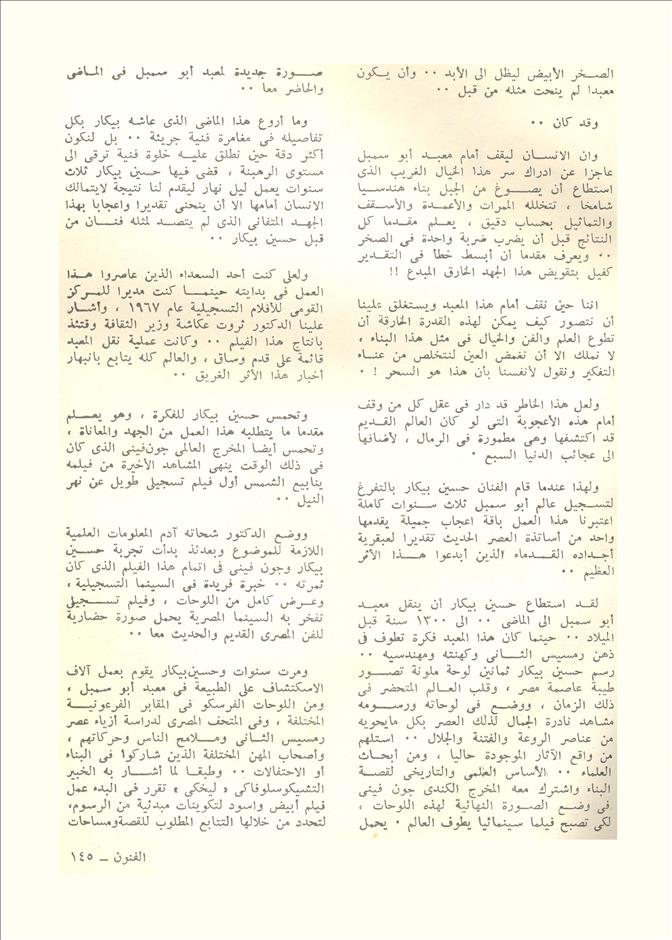 الصخر الأبيض ليظل الى الأبد ٠٠ وأن يكون
معبدا لم ينحت مثله من قبل ٠٠
وقد كان ٠٠
وان الانسان ليقف أمام معبد أبو سمبل
عاجزا عن ادراك سر هذا الخيال الغريب الذى
استطاع أن يصوغ من الجبل بناء هندسيا
شامخا ، تتخلله الممرات والأعمدة والأسقف
والتماثيل بحساب دقيق ، يعلم مقدما كل
النتائج قبل أن يضرب ضربة واحدة فى الصخر
٠٠ ويعرف مقدما أن أبسط خطأ فى التقدير
كفيل بتقويض هذا الجهد الخارق المبدع !!
اننا حين نقف أمام هذا المعبد ويستغلق علينا
أن نتصور كيف يمكن لهذه القدرة الخارقة أن
تطوع العلم والفن والخيال فى مثل هذا البناء ،
لا نملك الا أن نغمض العين لنتخلص من عناء
التفكير ونقول لأنفسنا بأن هذا هو السحر ! ٠
ولعل هذا الخاطر قد دار فى عقل كل من وقف
أمام هذه الأعجوبة التى لو كان العالم القديم
قد اكتشفها وهى مطمورة فى الرمال ، لأضافها
الى عجائب الدنيا السبع ٠
ولهذا عندما قام الفنان حسين بيكار بالتفرغ
لتسجيل عالم أبو سمبل ثلاث سنوات كاملة
اعتبرنا هذا العمل باقة اعجاب جميلة يقدمها
واحد من أساتذة العصر الحديث تقديرا لعبقرية
أجداده القدماء الذين أبدعوا هذا الأثر
العظيم ٠٠
لقد استطاع حسين بيكار أن ينقل معبد
أبو سمبل الى الماضى ٠٠ الى ١٣٠٠ سنة قبل
الميلاد ٠٠ حينما كان هذا المعبد فكرة تطوف فى
ذهن رمسيس الثانى وكهنته ومهندسيه ٠٠
رسم حسين بيكار ثمانين لوحة ملونة تصور
طيبة عاصمة مصر ، وقلب العالم المتحضر فى
ذلك الزمان ، ووضع فى لوحاته ورسومه
مشاهد نادرة الجمال لذلك العصر بكل مايحويه
من عناصر الروعة والفتنة والجلال ٠٠ استلهم
من واقع الآثار الموجودة حاليا ، ومن أبحاث
العلماء ٠٠ الأساس العلمى والتاريخى لقصة
البناء واشترك معه المخرج الكندى جون فينى
فى وضع الصورة النهائية لهذه اللوحات ،
لكى تصبح فيلما سينمائيا يطوف العالم ٠ يحمل
صورة جديدة لمعبد أبو سمبل فى الماضى
والحاضر معا ٠٠
وما أروع هذا الماضى الذى عاشه بيكار بكل
تفاصيله فى مغامرة فنية جريئة ٠٠ بل لنكون
أكثر دقة حين نطلق عليه خلوة فنية ترقى الى
مستوى الرهبنة ، قضى فيها حسين بيكار ثلاث
سنوات يعمل ليل نهار ليقدم لنا نتيجة لايتمالك
الانسان أمامها الا أن ينحنى تقديرا واعجابا بهذا
الجهد المتفانى الذى لم يتصد لمثله فنان من
قبل حسين بيكار ٠٠
ولعلى كنت أحد السعداء الذين عاصروا هذا
العمل فى بدايته حينما كنت مديرا للمركز
القومى للأفلام التسجيلية عام ١٩٦٧ ، وأشار
علينا الدكتور ثروت عكاشة وزير الثقافة وقتئذ
بانتاج هذا الفيلم ٠٠ وكانت عملية نقل المعبد
قائمة على قدم وساق ، والعالم كله يتابع بانبهار
أخبار هذا الأثر الغريق ٠٠
وتحمس حسين بيكار للفكرة ، وهو يعلم
مقدما ما يتطلبه هذا العمل من الجهد والمعاناة ،
وتحمس أيضا المخرج العالمى جون فينى الذى كان
فى ذلك الوقت ينهى المشاهد الأخيرة من فيلمه
ينابيع الشمس أول فيلم تسجيلى طويل عن نهر
النيل ٠٠
ووضع الدكتور شحاته آدم المعلومات العلمية
اللازمة للموضوع وبعدئذ بدأت تجربة حسين
بيكار وجون فينى فى اتمام هذا الفيلم الذى كان
ثمرته ٠٠ خبرة فريدة فى السينما التسجيلية ،
وعرض كامل من اللوحات ، وفيلم تسجيلى
تفخر به السينما المصرية يحمل صورة حضارية
للفن المصرى القديم والحديث معا ٠٠
ومرت سنوات وحسين بيكار يقوم بعمل آلاف
الاسكتشاف على الطبيعة فى معبد أبو سمبل ،
ومن اللوحات الفرسكو فى المقابر الفرعونية
المختلفة ، وفى المتحف المصرى لدراسة أزياء عصر
رمسيس الثانى وملامح الناس وحركاتهم ،
وأصحاب المهن المختلفة الذين شاركوا فى البناء
أو الاحتفالات ٠٠ وطبقا لما أشار به الخبير
التشيكوسلوفاكى « ليخكى » تقرر فى البدء عمل
فيلم أبيض واسود لتكوينات مبدئية من الرسوم،
لتحدد من خلالها التتابع المطلوب للقصة ومساحات
الفنون ــ ١٤٥